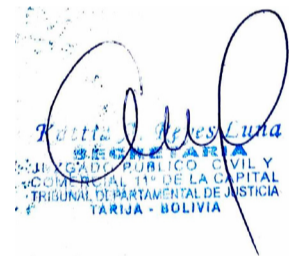 Reyes Luna
SECRETARIA
JUZGADO PUBLICO CIVIL Y
COMERCIAL 11° DE LA CAPITAL
TRIBUNAL DEPARTAMENTAL DE JUSTICIA
TARIJA - BOLIVIA